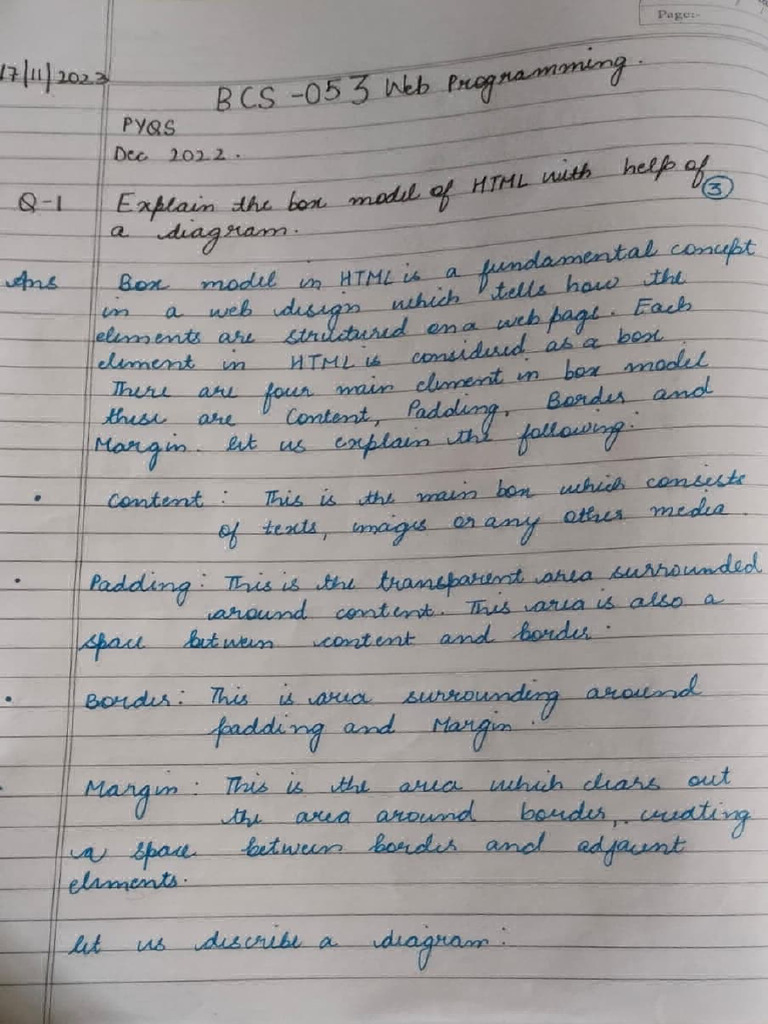 Page:-
17/11/2023
BCS-053 Web Programming.
PYQS
Dec 2022.
Q-1 Explain the box model of HTML with help of
a diagram. 3
Ans Box model in HTML is a fundamental concept
in a web design which tells how the
elements are structured on a web page. Each
element in HTML is considered as a box
There are four main element in box model
these are Content, Padding, Border and
Margin. let us explain the following:
• Content: This is the main box which consists
of texts, images or any other media.
• Padding: This is the transparent area surrounded
around content. This area is also a
space between content and border.
• Border: This is area surrounding around
padding and Margin.
Margin: This is the area which clears out
the area around border, creating
a space between border and adjacent
elements.
let us describe a diagram: